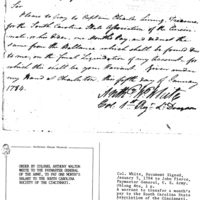 Sir
Please to pay to Captain Charles Lining, Treasurer
for the South Carolina State Association of the Cincin-
nati, or his Order, one Months Pay, and deduct the
same from the Ballance which shall be found due
to me, on the final Liquidation of my Accounts, for
which this will be your Warrant. Given under
my Hand at Charleston the fifth day of January
1784.
Anth W White
Col. 1st Reg. L Dragoons
ORDER BY COLONEL ANTHONY WALTON
WHITE TO THE PAYMASTER GENERAL
OF THE ARMY, TO PAY ONE MONTH'S
SALARY TO THE SOUTH CAROLINA
SOCIETY OF THE CINCINNATI.
Col. White, Document Signed,
January 5, 1784 to John Pierce,
Paymaster General, U. S. Army.
Oblong 8vo, 1 p.
A warrant to transfer a month's
pay to the South Carolina State
Association of the Cincinnati.